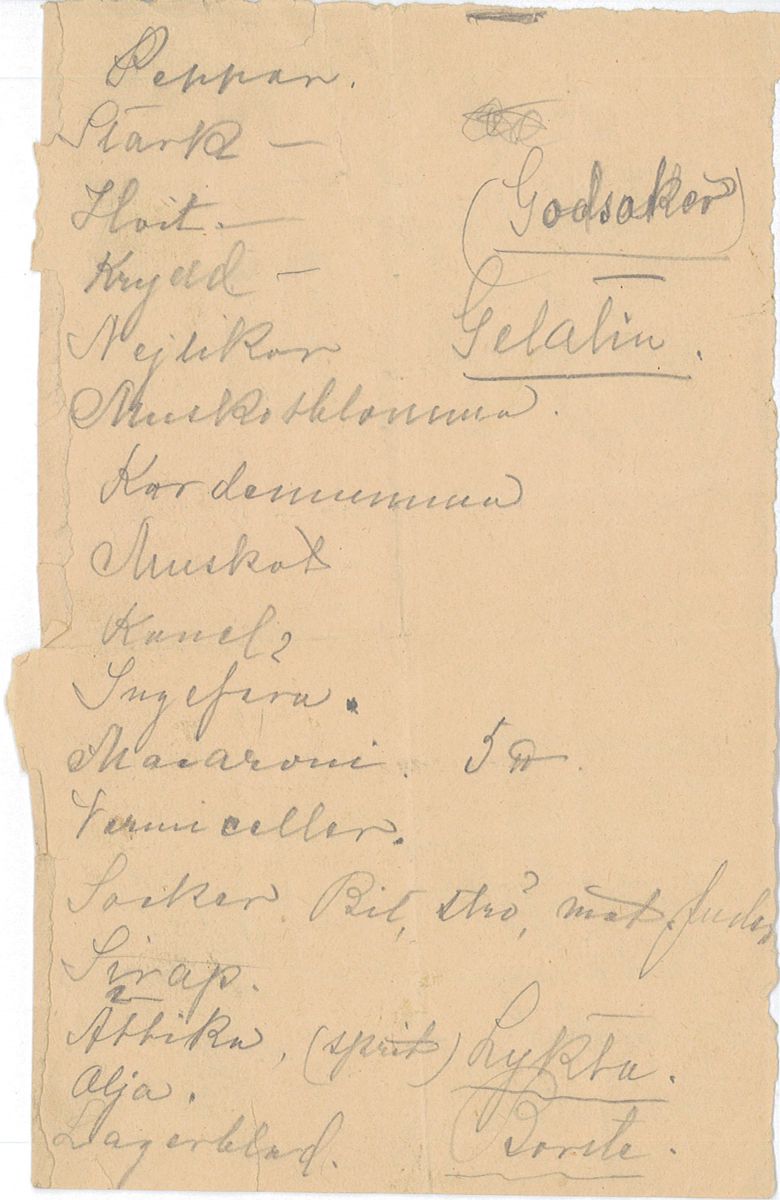 Peppar.
Stark —
Hvit. —
(Godsaker)
Krydd —
Nejlikor
Gelatin.
Muskotblomma.
Kardemumma
Muskot
Kanel,
Ingefära.
Macaroni. 5 ℔.
Vermiceller.
Socker Bit, strö, mat.
Sirap.
Ättika, (sprit) Lykta.
Olja.
Lagerblad. Borste.